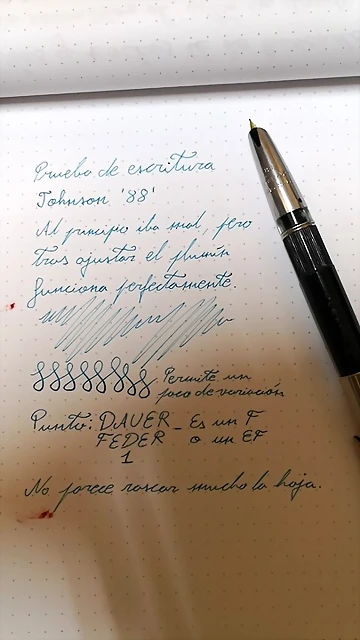 Prueba de escritura
Johnson '88'
Al principio iba mal, pero
tras ajustar el plumín
funciona perfectamente.
Permite un
poco de variación
Punto: DAUER _ Es un F
FEDER o un EF
1
No parece rascar mucho la hoja.